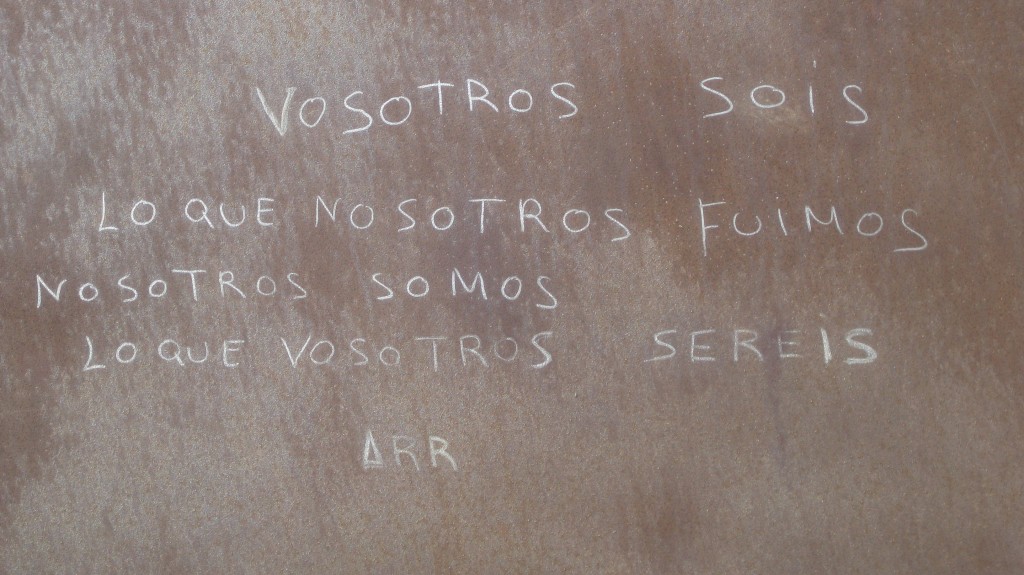 VOSOTROS SOIS
LO QUE NOSOTROS FUIMOS
NOSOTROS SOMOS
LO QUE VOSOTROS SEREIS
ARR